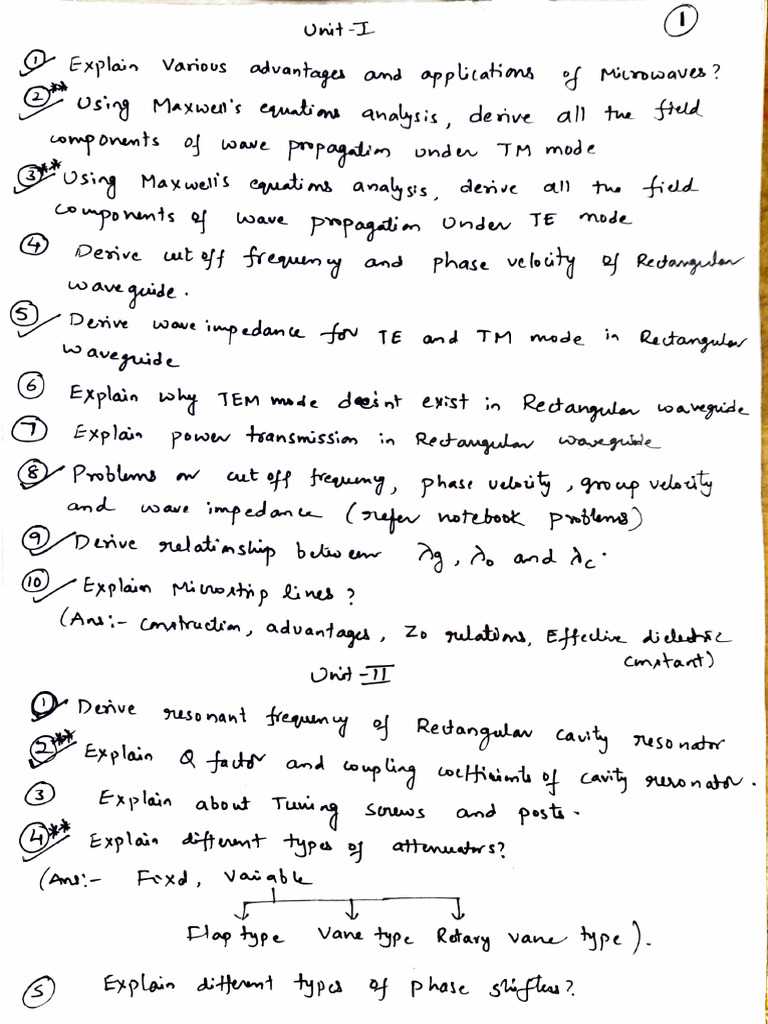 Unit-I
1
① Explain various advantages and applications of Microwaves?
②** Using Maxwell's equations analysis, derive all the field
components of wave propagation under TM mode
③** Using Maxwell's equations analysis, derive all the field
components of wave propagation under TE mode
④ Derive cut off frequency and phase velocity of Rectangular
waveguide.
⑤ Derive wave impedance for TE and TM mode in Rectangular
waveguide
⑥ Explain why TEM mode doesn't exist in Rectangular waveguide
⑦ Explain power transmission in Rectangular waveguide
⑧ Problems on cut off frequency, phase velocity, group velocity
and wave impedance (refer notebook problems)
⑨ Derive relationship between λg, λ0 and λc.
⑩ Explain Microstrip lines?
(Ans:- construction, advantages, Z0 relations, Effective dielectric
constant)
Unit-II
① Derive resonant frequency of Rectangular cavity resonator
②** Explain Q factor and coupling coefficients of cavity resonator.
③ Explain about Tuning screws and posts.
④** Explain different types of attenuators?
(Ans:- Fixd, Variable
Flap type Vane type Rotary vane type).
⑤ Explain different types of phase shifters?